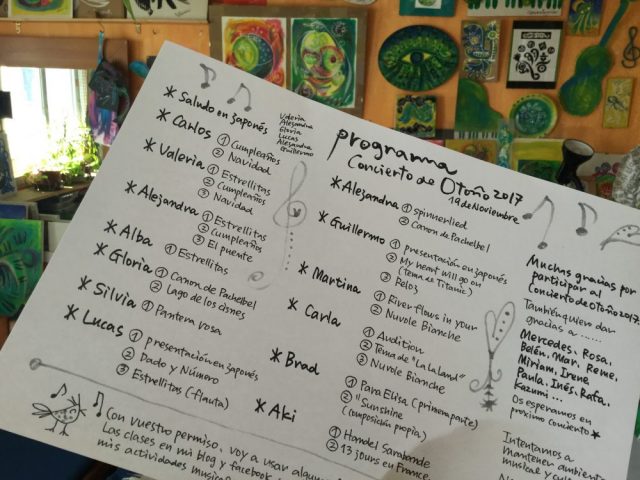 programa
Concierto de Otoño 2017
19 de Noviembre
* Saludo en japonés
Valeria
Alejandra
Gloria
Lucas
Alejandra
Guillermo
* Carlos ① Cumpleaños
② Navidad
* Valeria ① Estrellitas
② Cumpleaños
③ Navidad
* Alejandra ① Estrellitas
② Cumpleaños
③ El puente
* Alba ① Estrellitas
* Gloria ① Canon de Pachelbel
② Lago de los cisnes
* Silvia ① Pantera rosa
* Lucas ① presentación en japonés
② Dado y Número
③ Estrellitas (flauta)
* Alejandra ① spinnerlied
② Canon de Pachelbel
* Guillermo ① presentación en japonés
② My heart will go on
(tema de Titanic)
③ Reloj
* Martina ① River flows in your
② Nuvole Bianche
* Carla ① Audition
② Tema de "La La Land"
③ Nuvole Bianche
* Brad ① Para Elisa (primera parte)
② "Sunshine"
(composición propia)
* Aki ① Handel Sarabande
② 13 jours en France
Muchas gracias por
participar al
Concierto de Otoño 2017
También quien dar
gracias a ......
Mercedes, Rosa,
Belén, Mar, Reme,
Miriam, Irene,
Paula, Inés, Rafa,
Kazumi ...
Os esperamos en
próximo concierto ★
Intentamos a
mantener ambiente
musical y
Con vuestro permiso, voy a usar
Las clases en mi blog y facebook
mis actividades